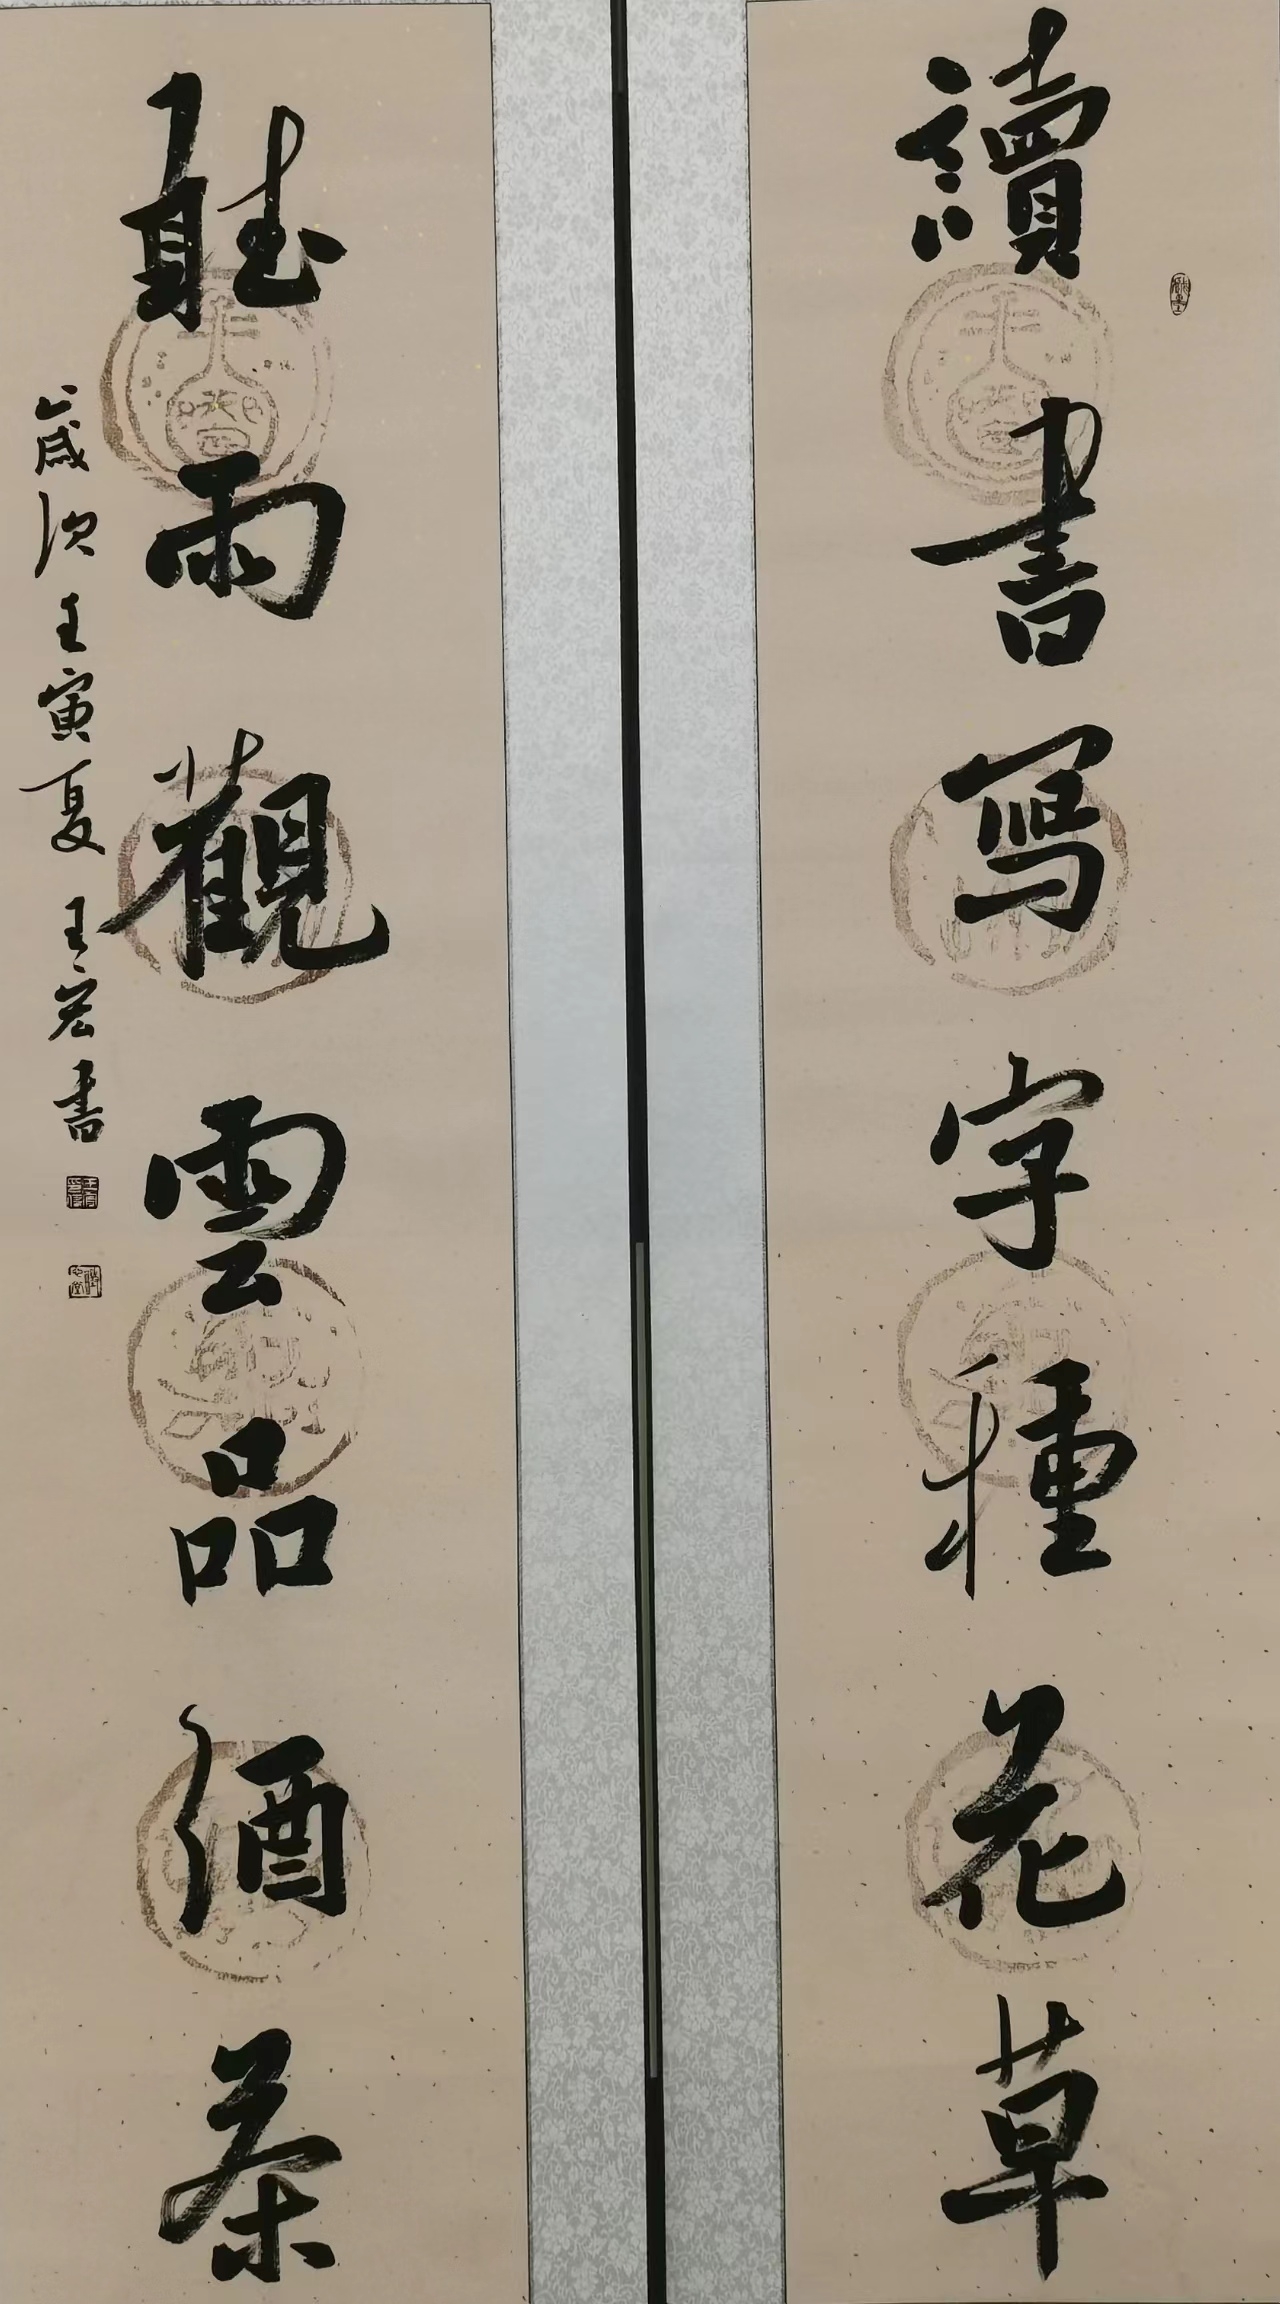 讀書寫字種花草
聽雨觀雲品酒茶
歲次壬寅夏王宏書